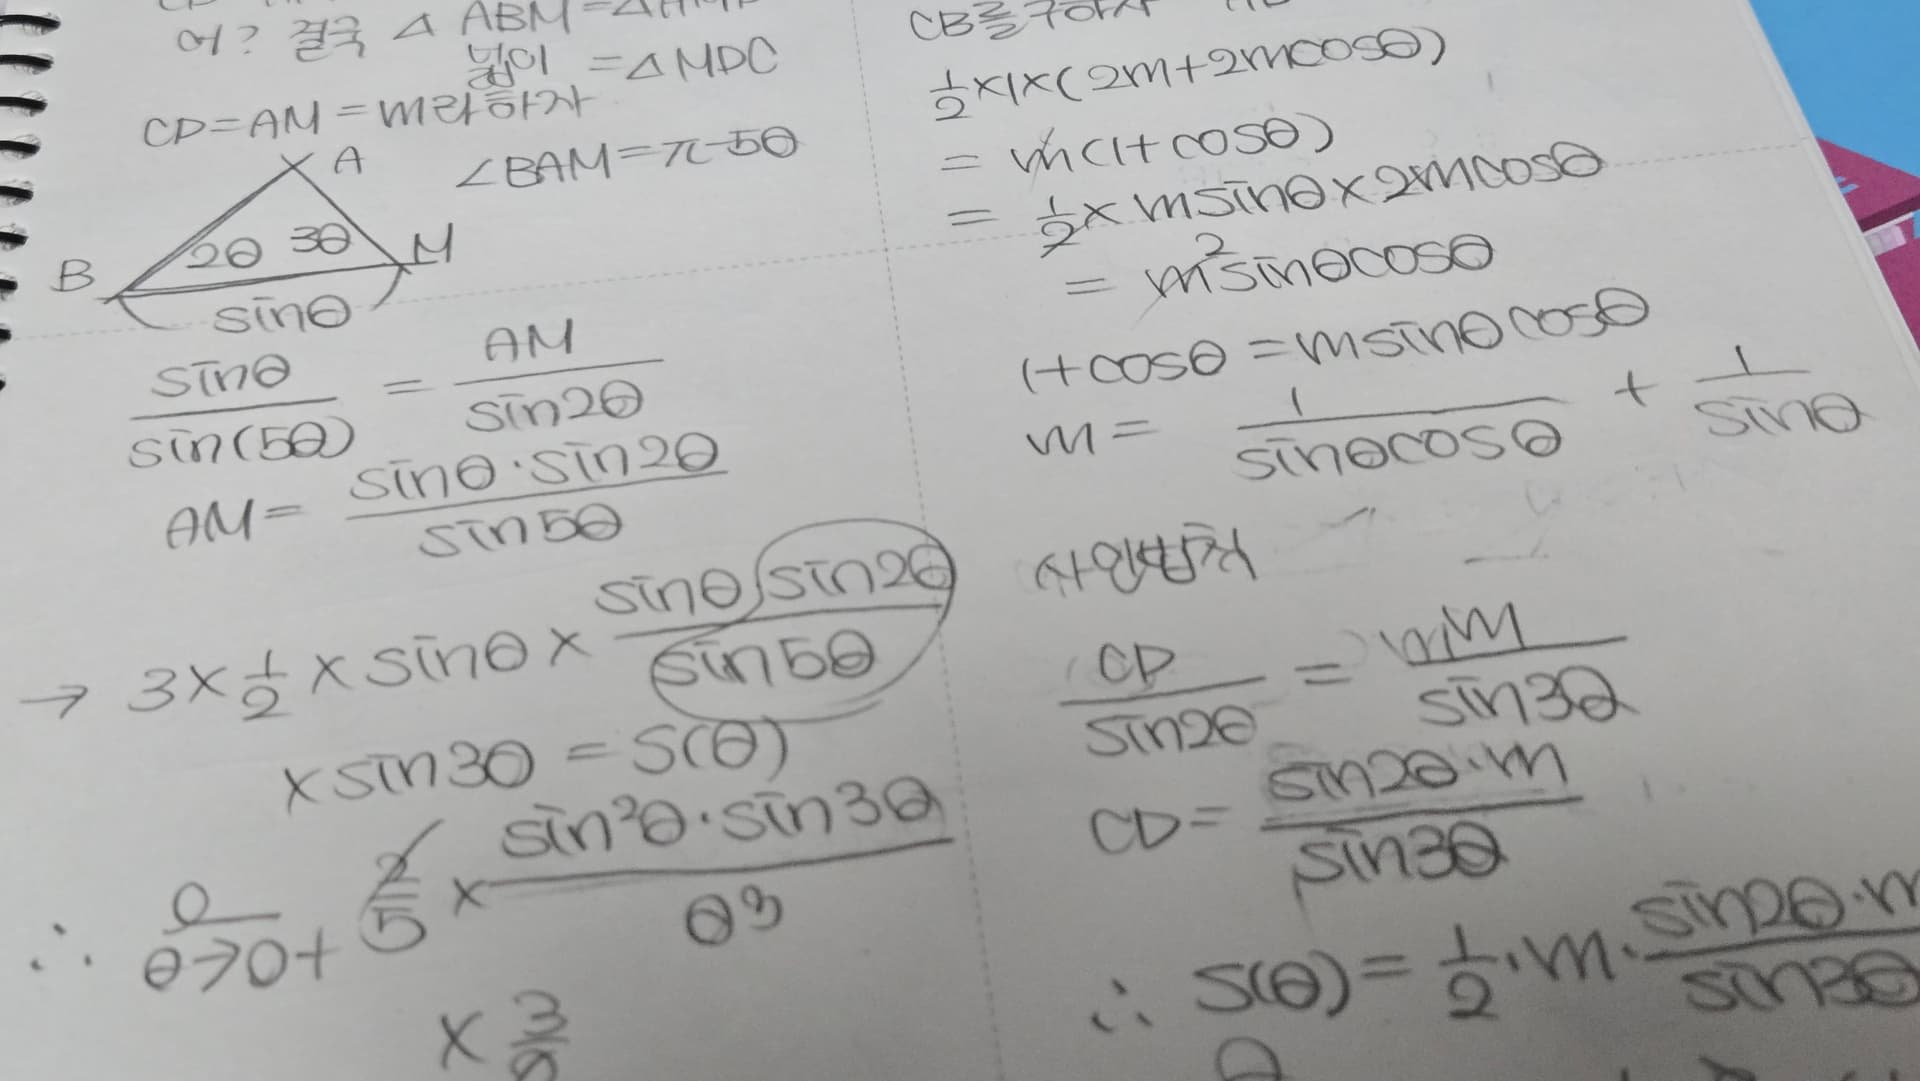 어? 결국 △ABM=△
넓이 =△MDC
CD=AM=m라 하자
A ∠BAM=π-5θ
2θ 3θ
B M
sinθ
sinθ/sin(5θ) = AM/sin2θ
AM= sinθ·sin2θ/sin5θ
→ 3×1/2×sinθ× sinθsin2θ/sin5θ
×sin3θ=S(θ)
∴ θ→0+ 2/5 × sin²θ·sin3θ/θ³
×3/2
CB를 구하자
1/2×1×(2m+2mcosθ)
= m(1+cosθ)
= 1/2×msinθ×2mcosθ
= m²sinθcosθ
1+cosθ=msinθcosθ
m= 1/sinθcosθ + 1/sinθ
사인법칙
CD/sin2θ = m/sin3θ
CD= sin2θ·m/sin3θ
∴ S(θ)= 1/2·m· sin2θ·m/sin3θ